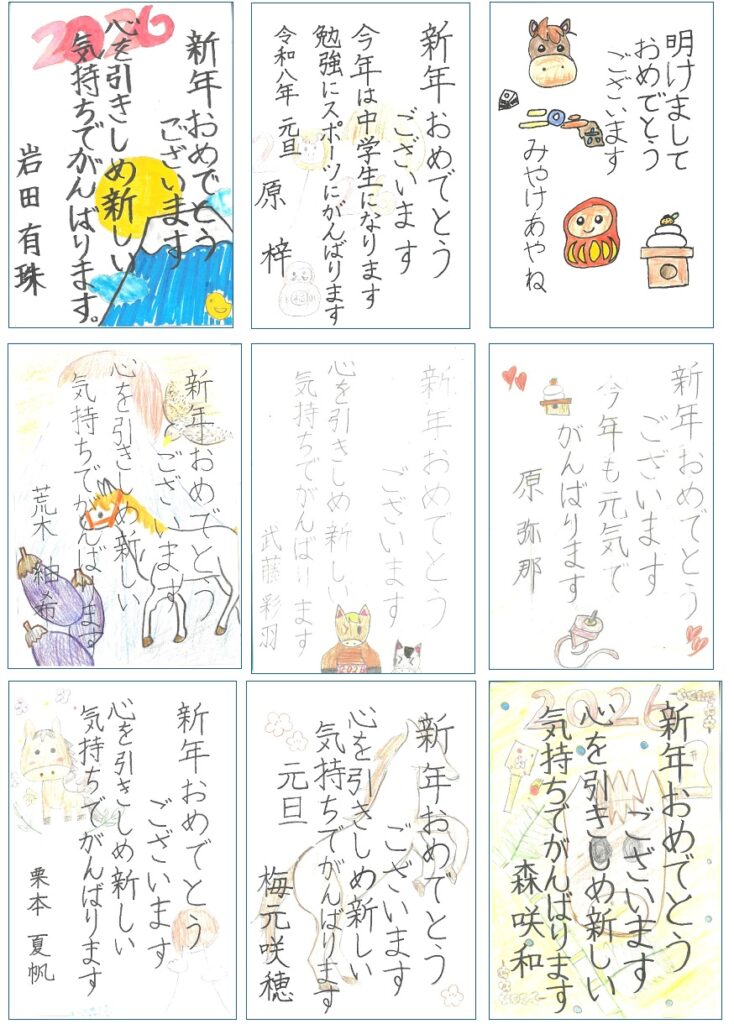 2026
新年おめでとう
ございます
心を引きしめ新しい
気持ちでがんばります。
岩田有珠
新年おめでとう
ございます
今年は中学生になります
勉強にスポーツにがんばります
令和八年 元旦
原 梓
明けまして
おめでとう
ございます
みやけあやね
新年おめでとう
ございます
心を引きしめ新しい
気持ちでがんばります
荒木 紬希
新年おめでとう
ございます
心を引きしめ新しい
気持ちでがんばります
武藤彩羽
2026
新年おめでとう
ございます
今年も元気で
がんばります
原 弥那
新年おめでとう
ございます
心を引きしめ新しい
気持ちでがんばります
栗本 夏帆
新年おめでとう
ございます
心を引きしめ新しい
気持ちでがんばります
元旦
梅元咲穂
2026
新年おめでとう
ございます
心を引きしめ新しい
気持ちでがんばります
森咲和